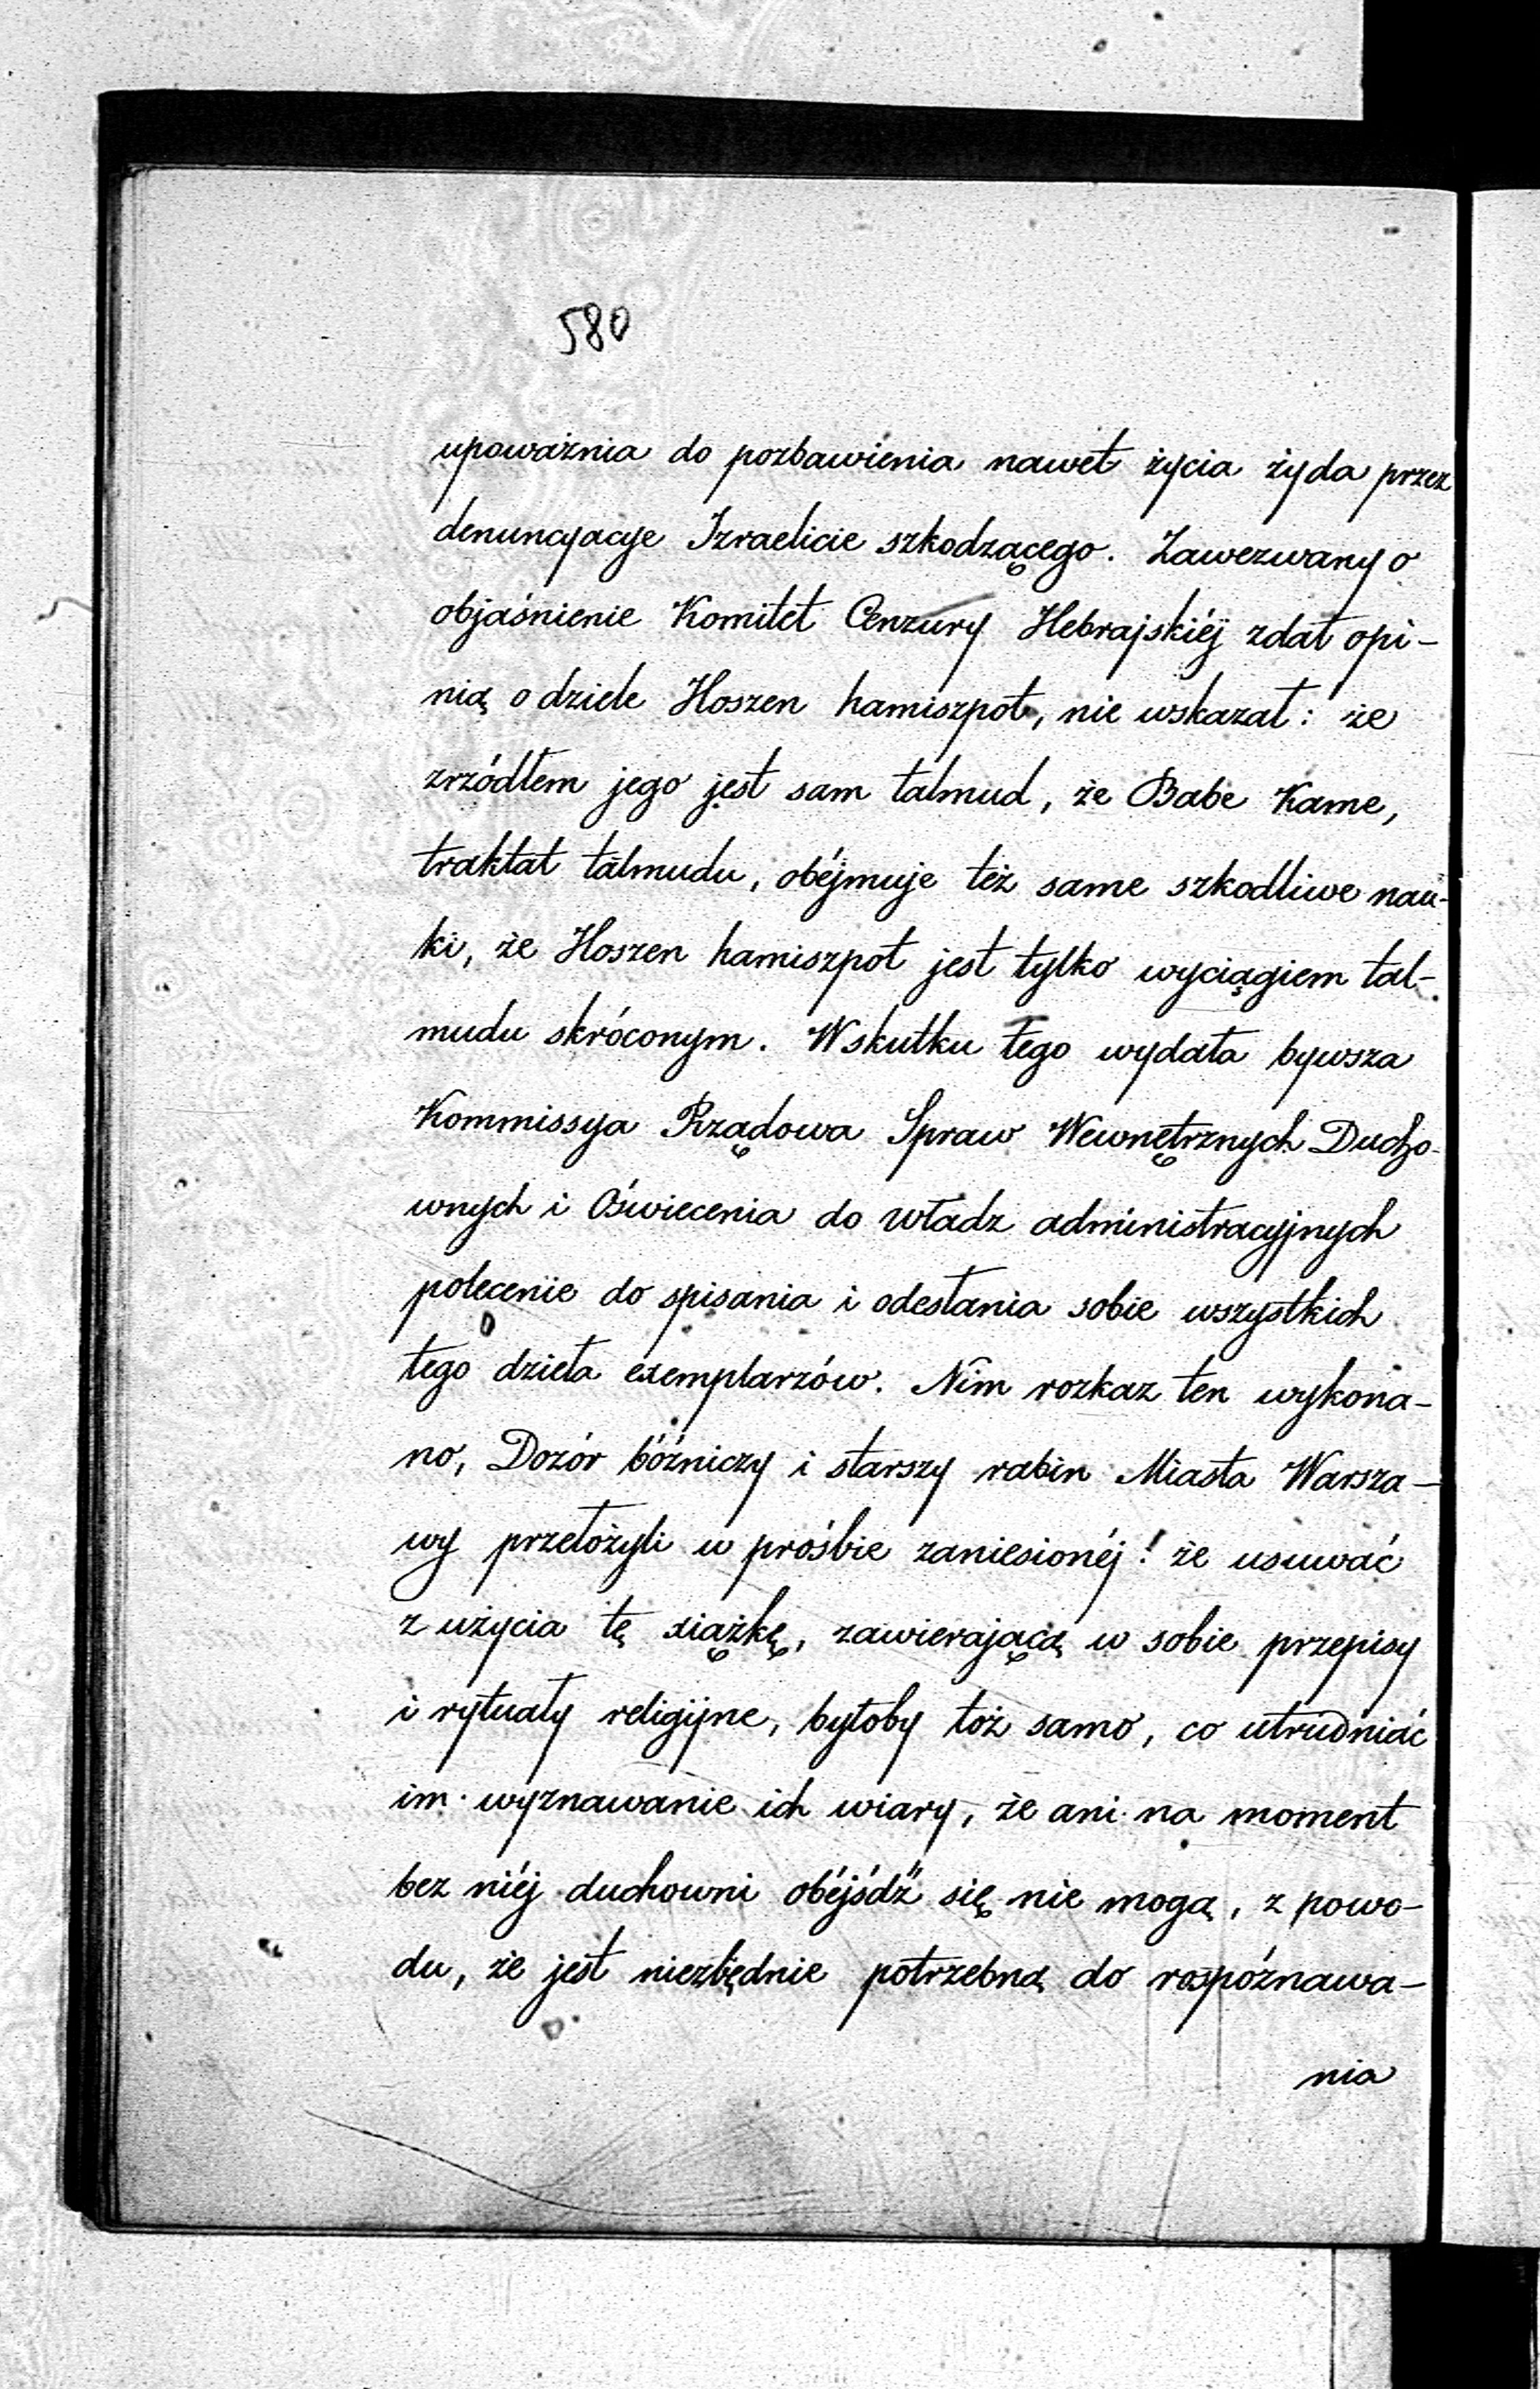 580
upoważnia do pozbawienia nawet życia żyda przez
denuncyacye Izraelicie szkodzącego. Zawezwany o
objaśnienie Komitet Cenzury Hebrajskiéj zdał opi-
nią o dziele Hoszen hamiszpot, nie wskazał: że
zrzódłem jego jest sam talmud, że Babe Kame,
traktat talmudu, obéjmuje też same szkodliwe nau-
ki, że Hoszen hamiszpot jest tylko wyciągiem tal-
mudu skróconym. Wskutku tego wydała bywsza
Kommissya Rządowa Spraw Wewnętrznych Ducho-
wnych i Oświecenia do władz administracyjnych
polecenie do spisania i odesłania sobie wszystkich
tego dzieła exemplarzów. Nim rozkaz ten wykona-
no, Dozór bóźniczy i starszy rabin Miasta Warsza-
wy przełożyli w prośbie zaniesionéj: że usuwać
z użycia tę xiążkę, zawierającą w sobie przepisy
i rytuały religijne, byłoby toż samo, co utrudniać
im wyznawanie ich wiary, że ani na moment
bez niéj duchowni obéjśdź się nie mogą, z powo-
du, że jest niezbędnie potrzebną do rospóznawa-
nia